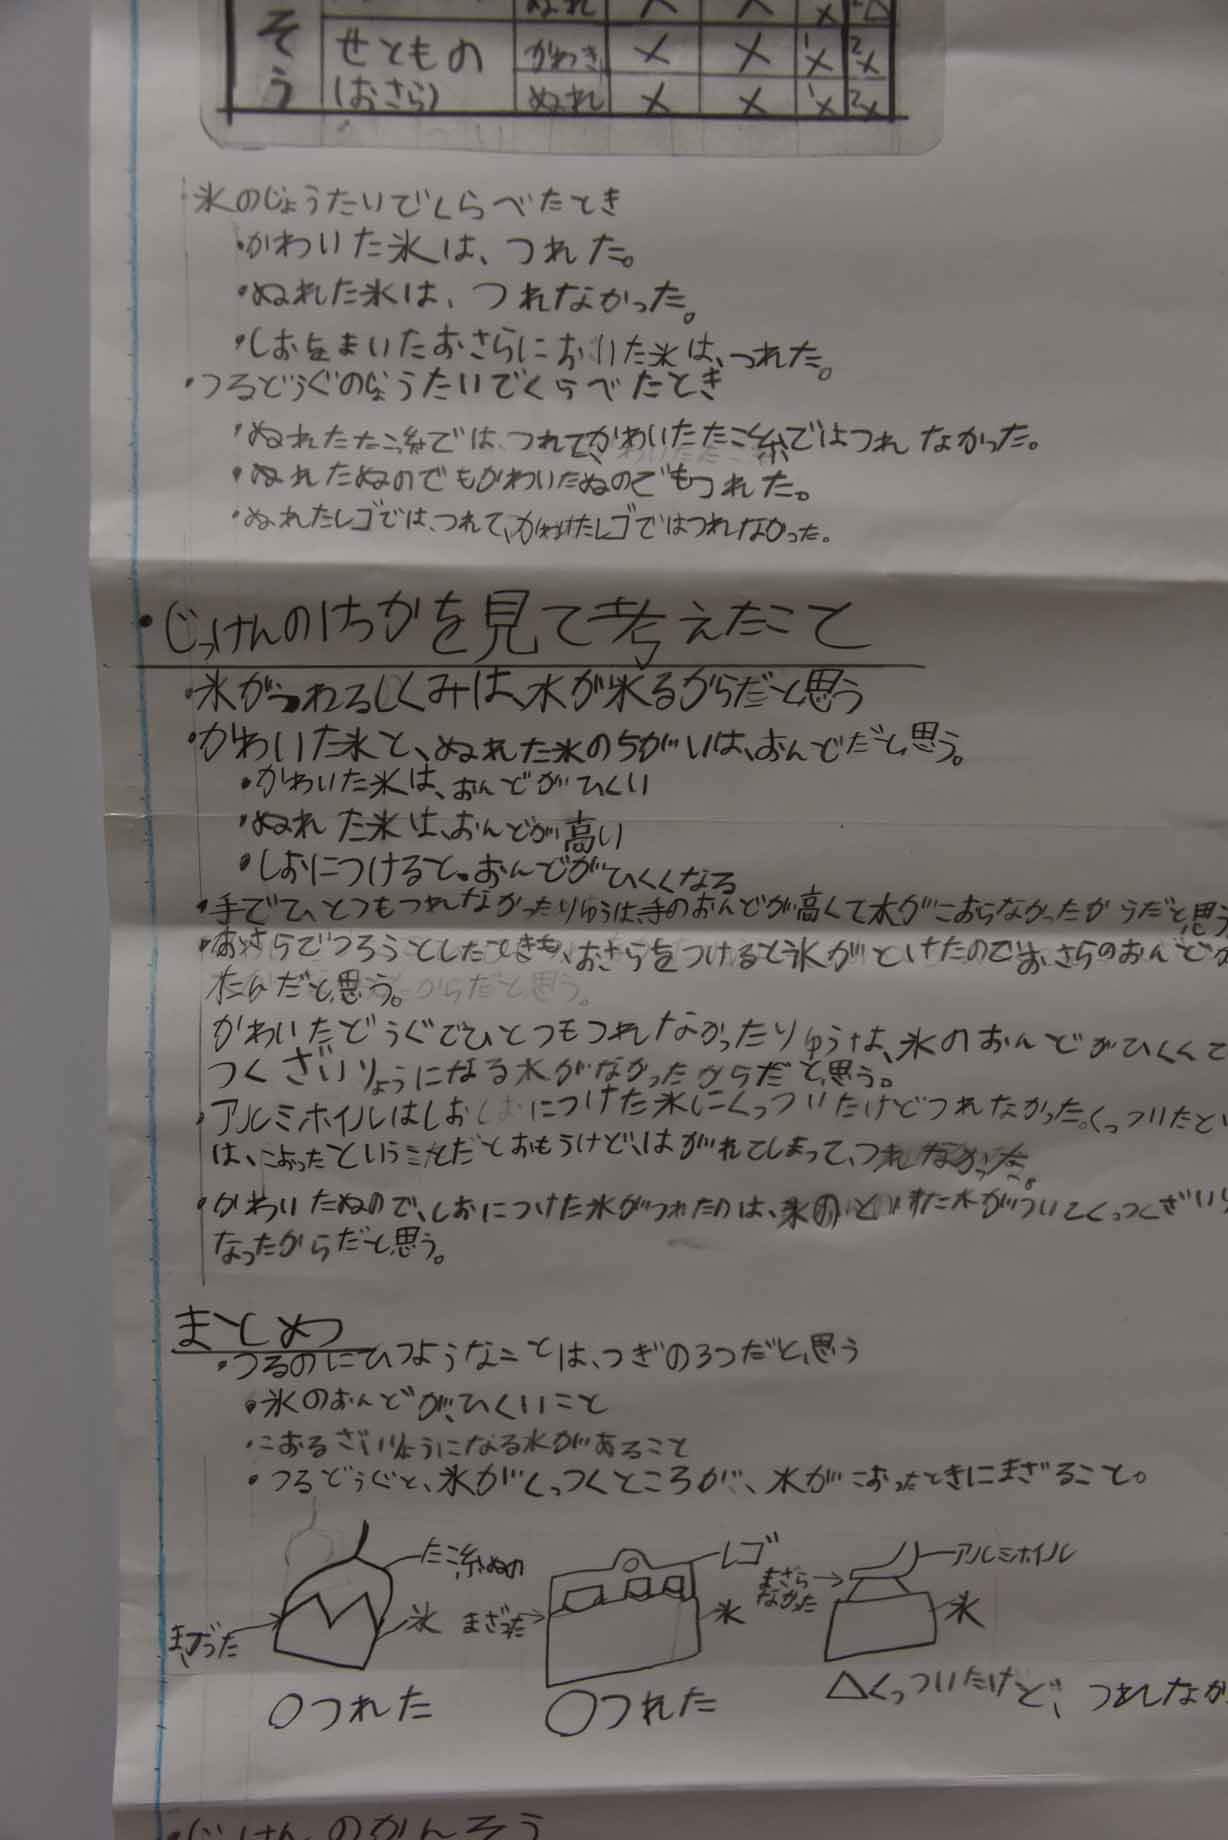 ぬれ × × 1× 2△
そう せともの (おさら) かわき × × 1× 2×
ぬれ × × 1× 2×
・氷のじょうたいでくらべたとき
・かわいた氷は、つれた。
・ぬれた氷は、つれなかった。
・しおをまいたおさらにおいた氷は、つれた。
・つるどうぐのじょうたいでくらべたとき
・ぬれたたこ糸では、つれて、かわいたたこ糸ではつれなかった。
・ぬれたぬのでもかわいたぬのでもつれた。
・ぬれたレゴでは、つれて、かわいたレゴではつれなかった。
・じっけんのけっかを見て考えたこと
・氷がつれるしくみは、水が氷るからだと思う
・かわいた氷と、ぬれた氷のちがいは、おんどだと思う。
・かわいた氷は、おんどがひくい
・ぬれた氷は、おんどが高い
・しおにつけると。おんどがひくくなる
・手でひとつもつれなかったりゆうは、手のおんどが高くて水がこおらなかったからだと思う
・おさらでつろうとしたときも、おさらをつけると氷がとけたのでおさらのおんどが
たんだと思う。
かわいたどうぐでひとつもつれなかったりゆうは、氷のおんどがひくくて
つくざいりょうになる水がなかったからだと思う。
・アルミホイルはしおにつけた氷にくっついたけどつれなかった。くっついたとい
は、こおったということだとおもうけど、はがれてしまって、つれなかった。
・かわいたぬので、しおにつけた氷がつれたのは、氷のとけた水がついてくっつくざいり
なったからだと思う。
まとめ
・つるのにひつようなことは、つぎの3つだと思う
・氷のおんどが、ひくいこと
・こおるざいりょうになる水があること
・つるどうぐと、氷がくっつくところが、水がこおったときにまざること。
たこ糸ぬの
氷
まざった
○つれた
レゴ
氷
まざった
○つれた
アルミホイル
氷
まざらなかった
△くっついたけど、つれなか
・じっけんのかんそう